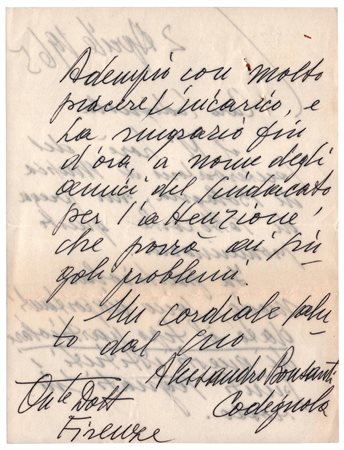 Adempio con molto
piacere l'incarico, e
La ringrazio fin
d'ora a nome degli
amici del sindacato
per l'attenzione,
che porrà ai sin-
goli problemi.
Un cordiale salu-
to dal suo
Alessandro Bonsanti
Codignola
On te Dott
Firenze